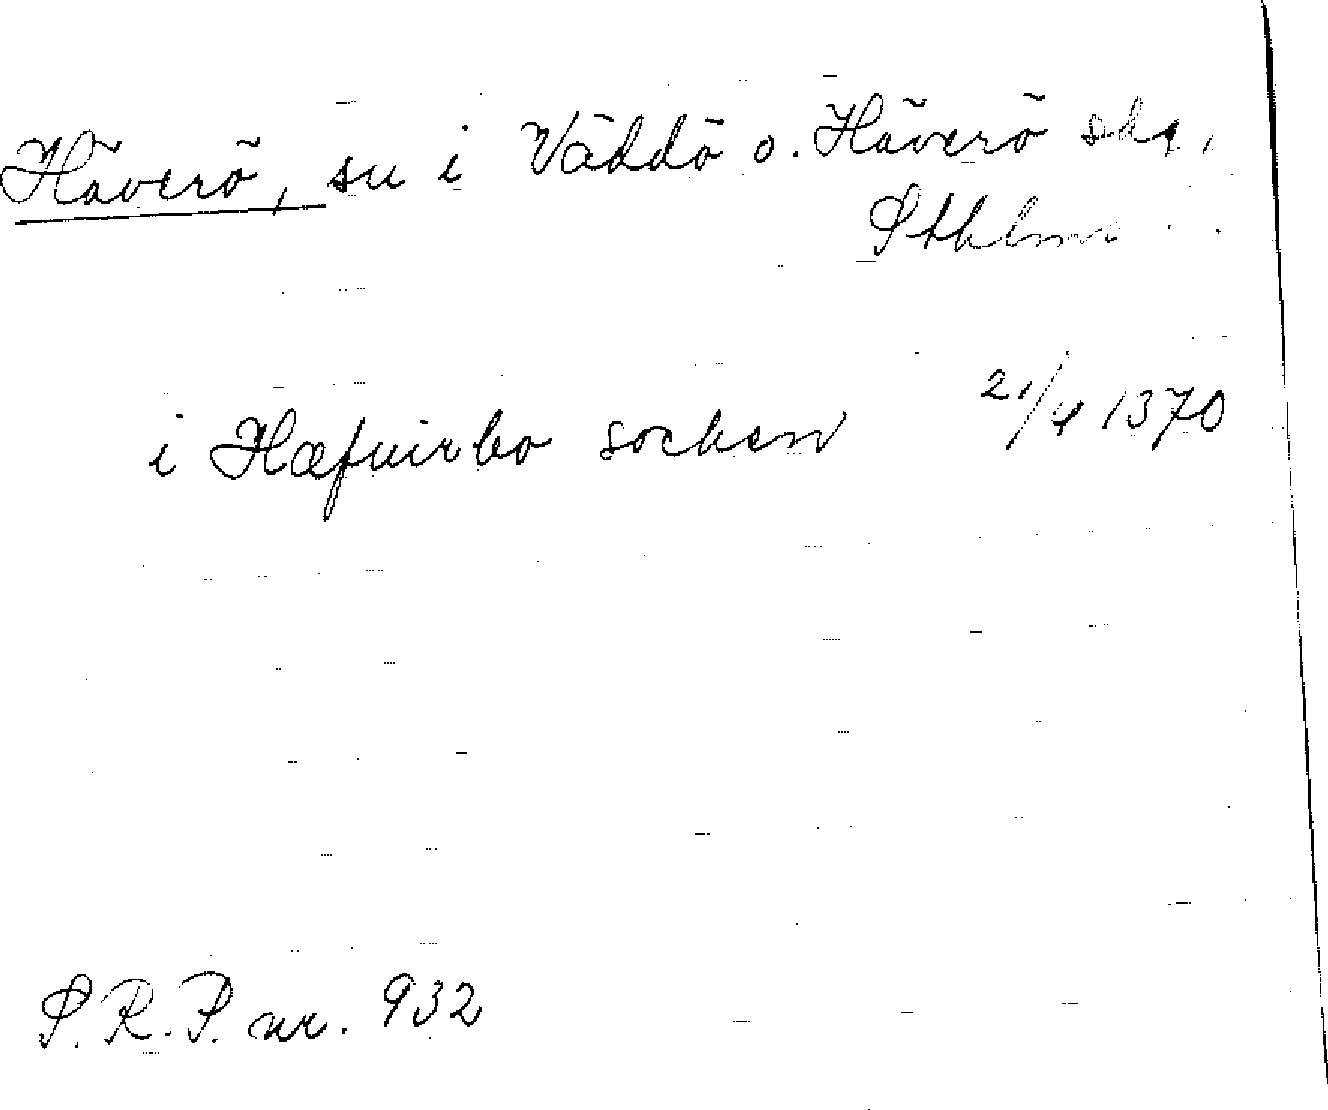 Häverö, sn i Väddö o. Häverö skg,
Sthlms
i Hæfuirbo socken 21/4 1370
S.R.P. nr. 932